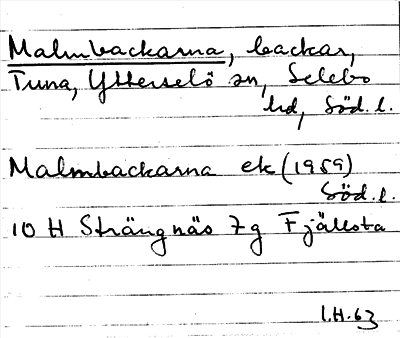 Malmbackarna, backar,
Tuna, Ytterselö sn, Selebo
hd, Söd. l.
Malmbackarna ek (1959)
Söd. l.
10 H Strängnäs 7g Fjällsta
I.H. 63